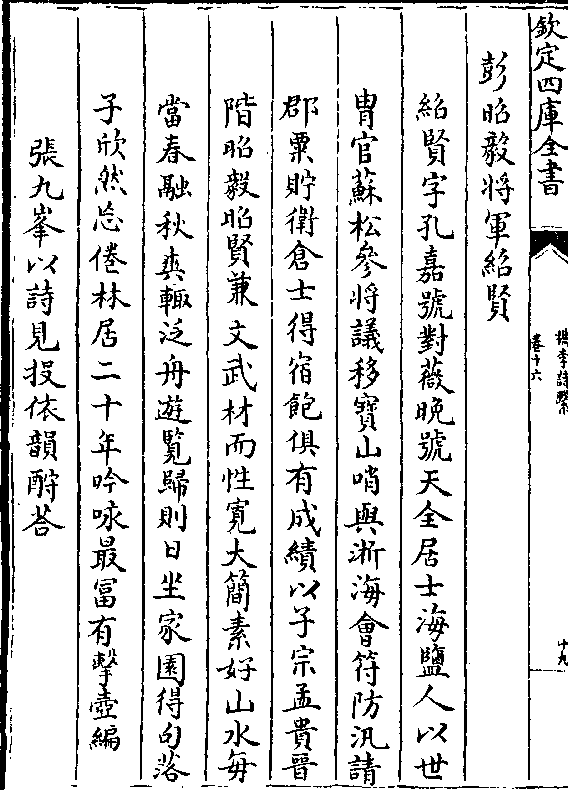 欽定四庫全書
檇李詩繫
卷十六
十九
彭昭毅將軍紹賢
紹賢字孔嘉號對薇晚號天全居士海鹽人以世
胄官蘇松參將議移寶山哨與浙海會符防汛請
郡粟貯衛倉士得宿飽俱有成績以子宗孟貴晉
階昭毅昭賢兼文武材而性寛大簡素好山水每
當春融秋爽輙泛舟遊覽歸則日坐家園得句落
子欣然忘倦林居二十年吟咏最富有擊壺編
張九峯以詩見投依韻酧荅